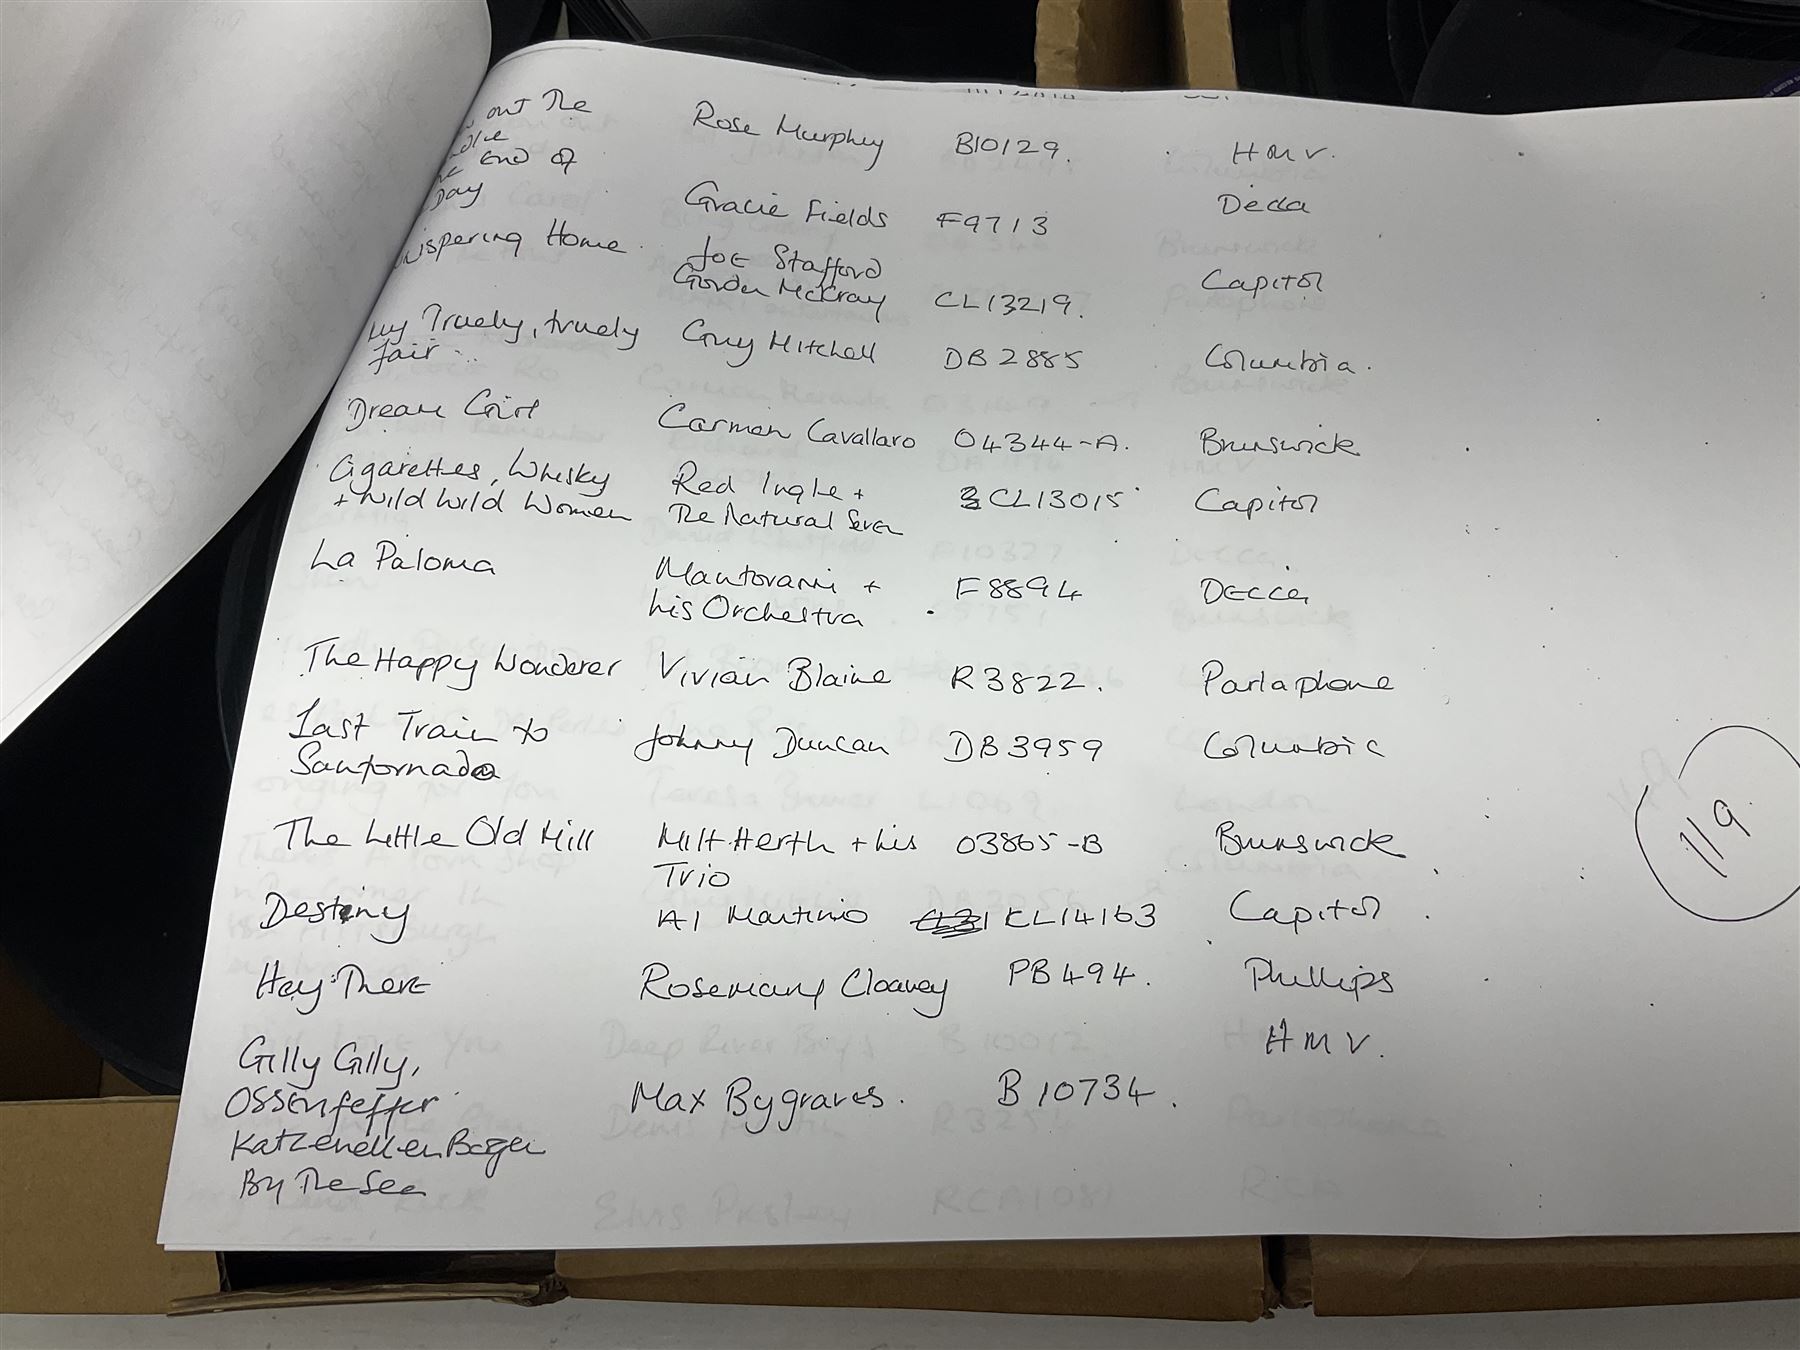 out The Rose Murphy B10129. HMV.
End of
Day Gracie Fields F9713 Decca
Whispering Home Joe Stafford Capitol
Gordon McCray CL13219.
My Truely, truely Guy Mitchell DB 2885 Columbia.
fair.
Dream Girl Carmen Cavallaro 04344-A. Brunswick
Cigarettes, Whisky Red Ingle + CL13015 Capitol
+ wild wild Women The Natural Seven
La Paloma Mantovani + F8894 Decca
his Orchestra
The Happy Wonderer Vivian Blaine R3822. Parlaphone
Last Train to Johnny Duncan DB3959 Columbia
Sanfornado
The Little Old Mill Milt Herth + his 03865-B Brunswick
Trio
Destiny Al Martinio CL14163 Capitol
Hey There Rosemary Clooney PB494. Phillips
Gilly Gilly, HMV.
Ossenfeffer Max Bygraves. B10734.
Katzenellen Bogen
By The Sea
119.